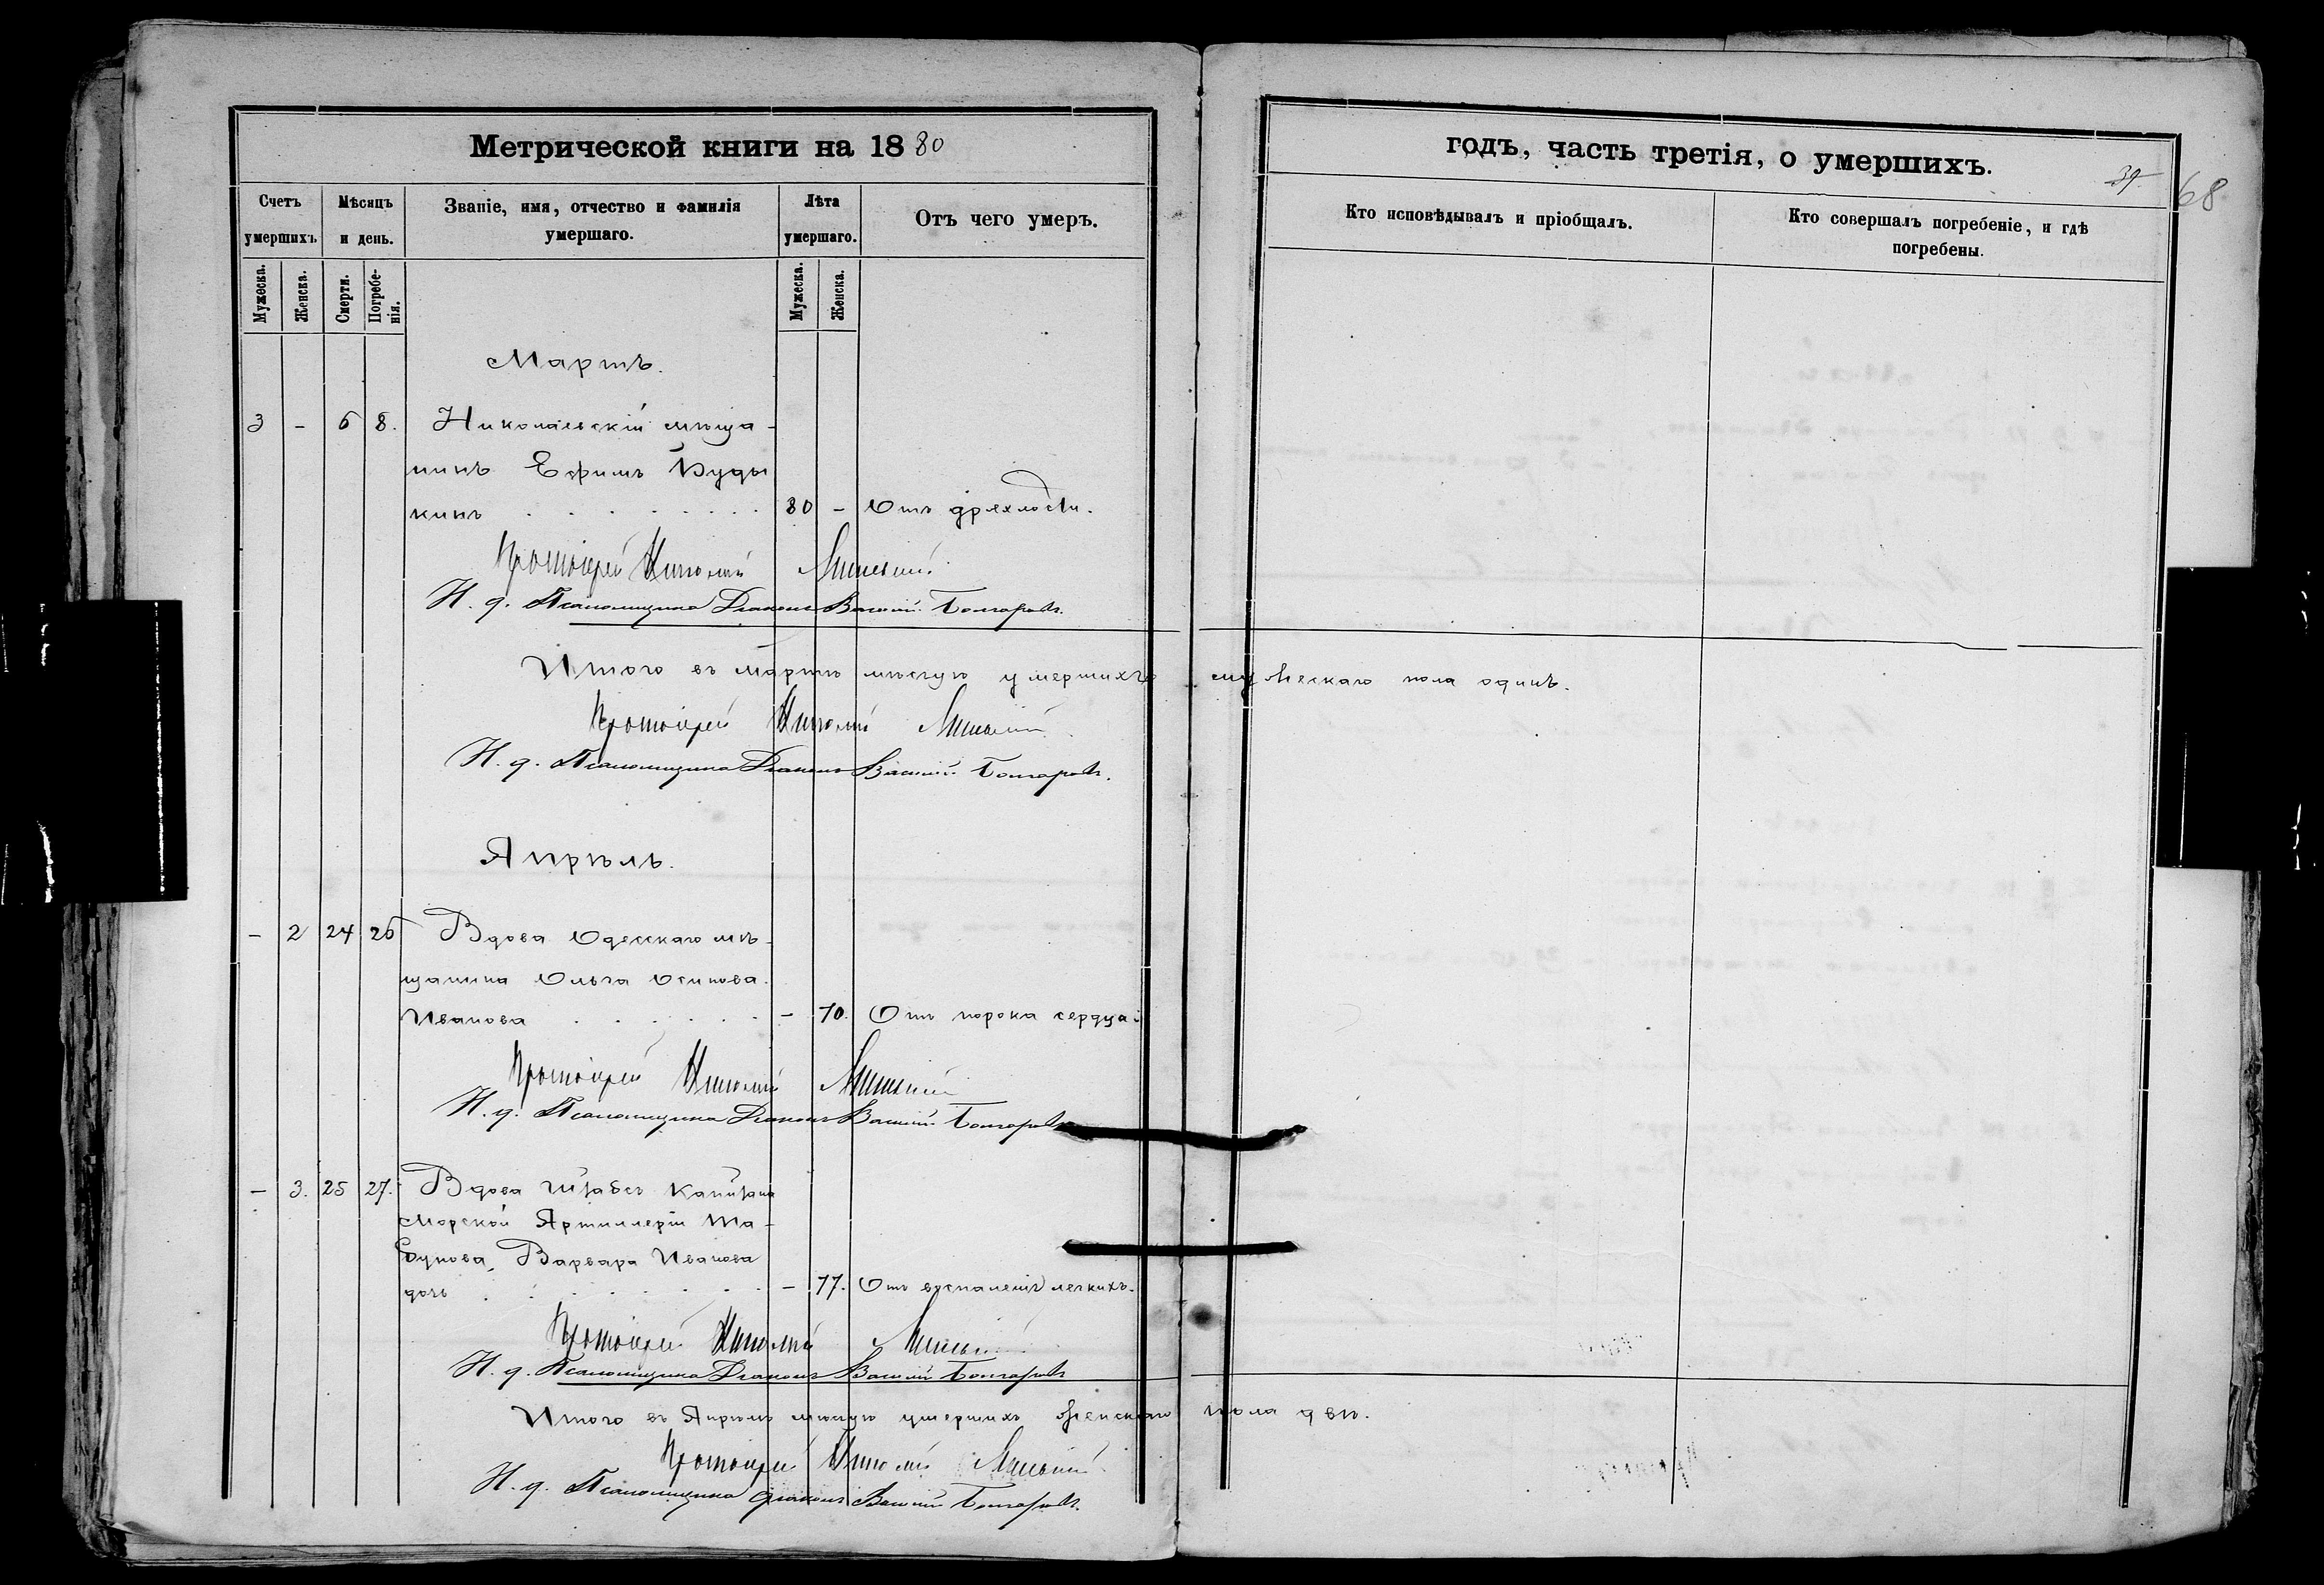 Метрической книги на 1880
годъ, часть третія, о умершихъ.
39
68
Счетъ умершихъ.
Мѣсяцъ и день.
Званіе, имя, отчество и фамилія умершаго.
Лѣта умершаго.
Отъ чего умеръ.
Кто исповѣдывалъ и пріобщалъ.
Кто совершалъ погребеніе, и гдѣ погребены.
Мужеска.
Женска.
Смерти.
Погребенія.
Мужеска.
Женска.
Мартъ.
3 - 6 8. Николаевскій мѣща-
нинъ Ефимъ Буды
кинъ . . . . . . . . 80 - Отъ дряхлости.
Протоіерей Николай
И. д. Псаломщика Діаконъ Василій Болгаровъ.
Итого въ мартѣ мѣсяцѣ умершихъ мужескаго пола одинъ.
Протоіерей Николай
И. д. Псаломщика Діаконъ Василій Болгаровъ.
Апрѣль.
- 2 24 26 Вдова Одесскаго мѣ-
щанина Ольга Осипова
Иванова . . . . . . - 70. Отъ порока сердца.
Протоіерей Николай
И. д. Псаломщика Діаконъ Василій Болгаровъ
- 3. 25 27. Вдова Штабсъ Капитана
Морской Артиллеріи Та-
бунова, Варвара Иванова
дочь . . . . . . . . - 77. Отъ воспаленія легкихъ.
Протоіерей Николай
И. д. Псаломщика Діаконъ Василій Болгаровъ
Итого въ Апрѣлѣ мѣсяцѣ умершихъ женскаго пола двѣ.
Протоіерей Николай
И. д. Псаломщика діаконъ Василій Болгаровъ.